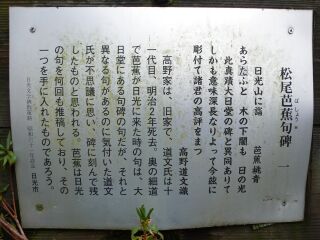 松尾芭蕉句碑 一
ばしょう
日光山に詣 芭蕉桃青
あらたふと 木の下闇も 日の光
此真蹟大日堂の碑と異同ありて
しかも意味深長なりよって今茲に
彫付て諸君の高評をまつ
高野道文識
高野家は、旧家で、道文氏は十
一代目、明治2年死去。奥の細道
で芭蕉が日光に来た時の句は、大
日堂にある句碑の句だが、それと
異なる句があるのに気付いた道文
氏が不思議に思い、碑に刻んで残
したものと思われる。芭蕉は日光
の句を何回も推稿しており、その
一つを手に入れたものであろう。
日光市